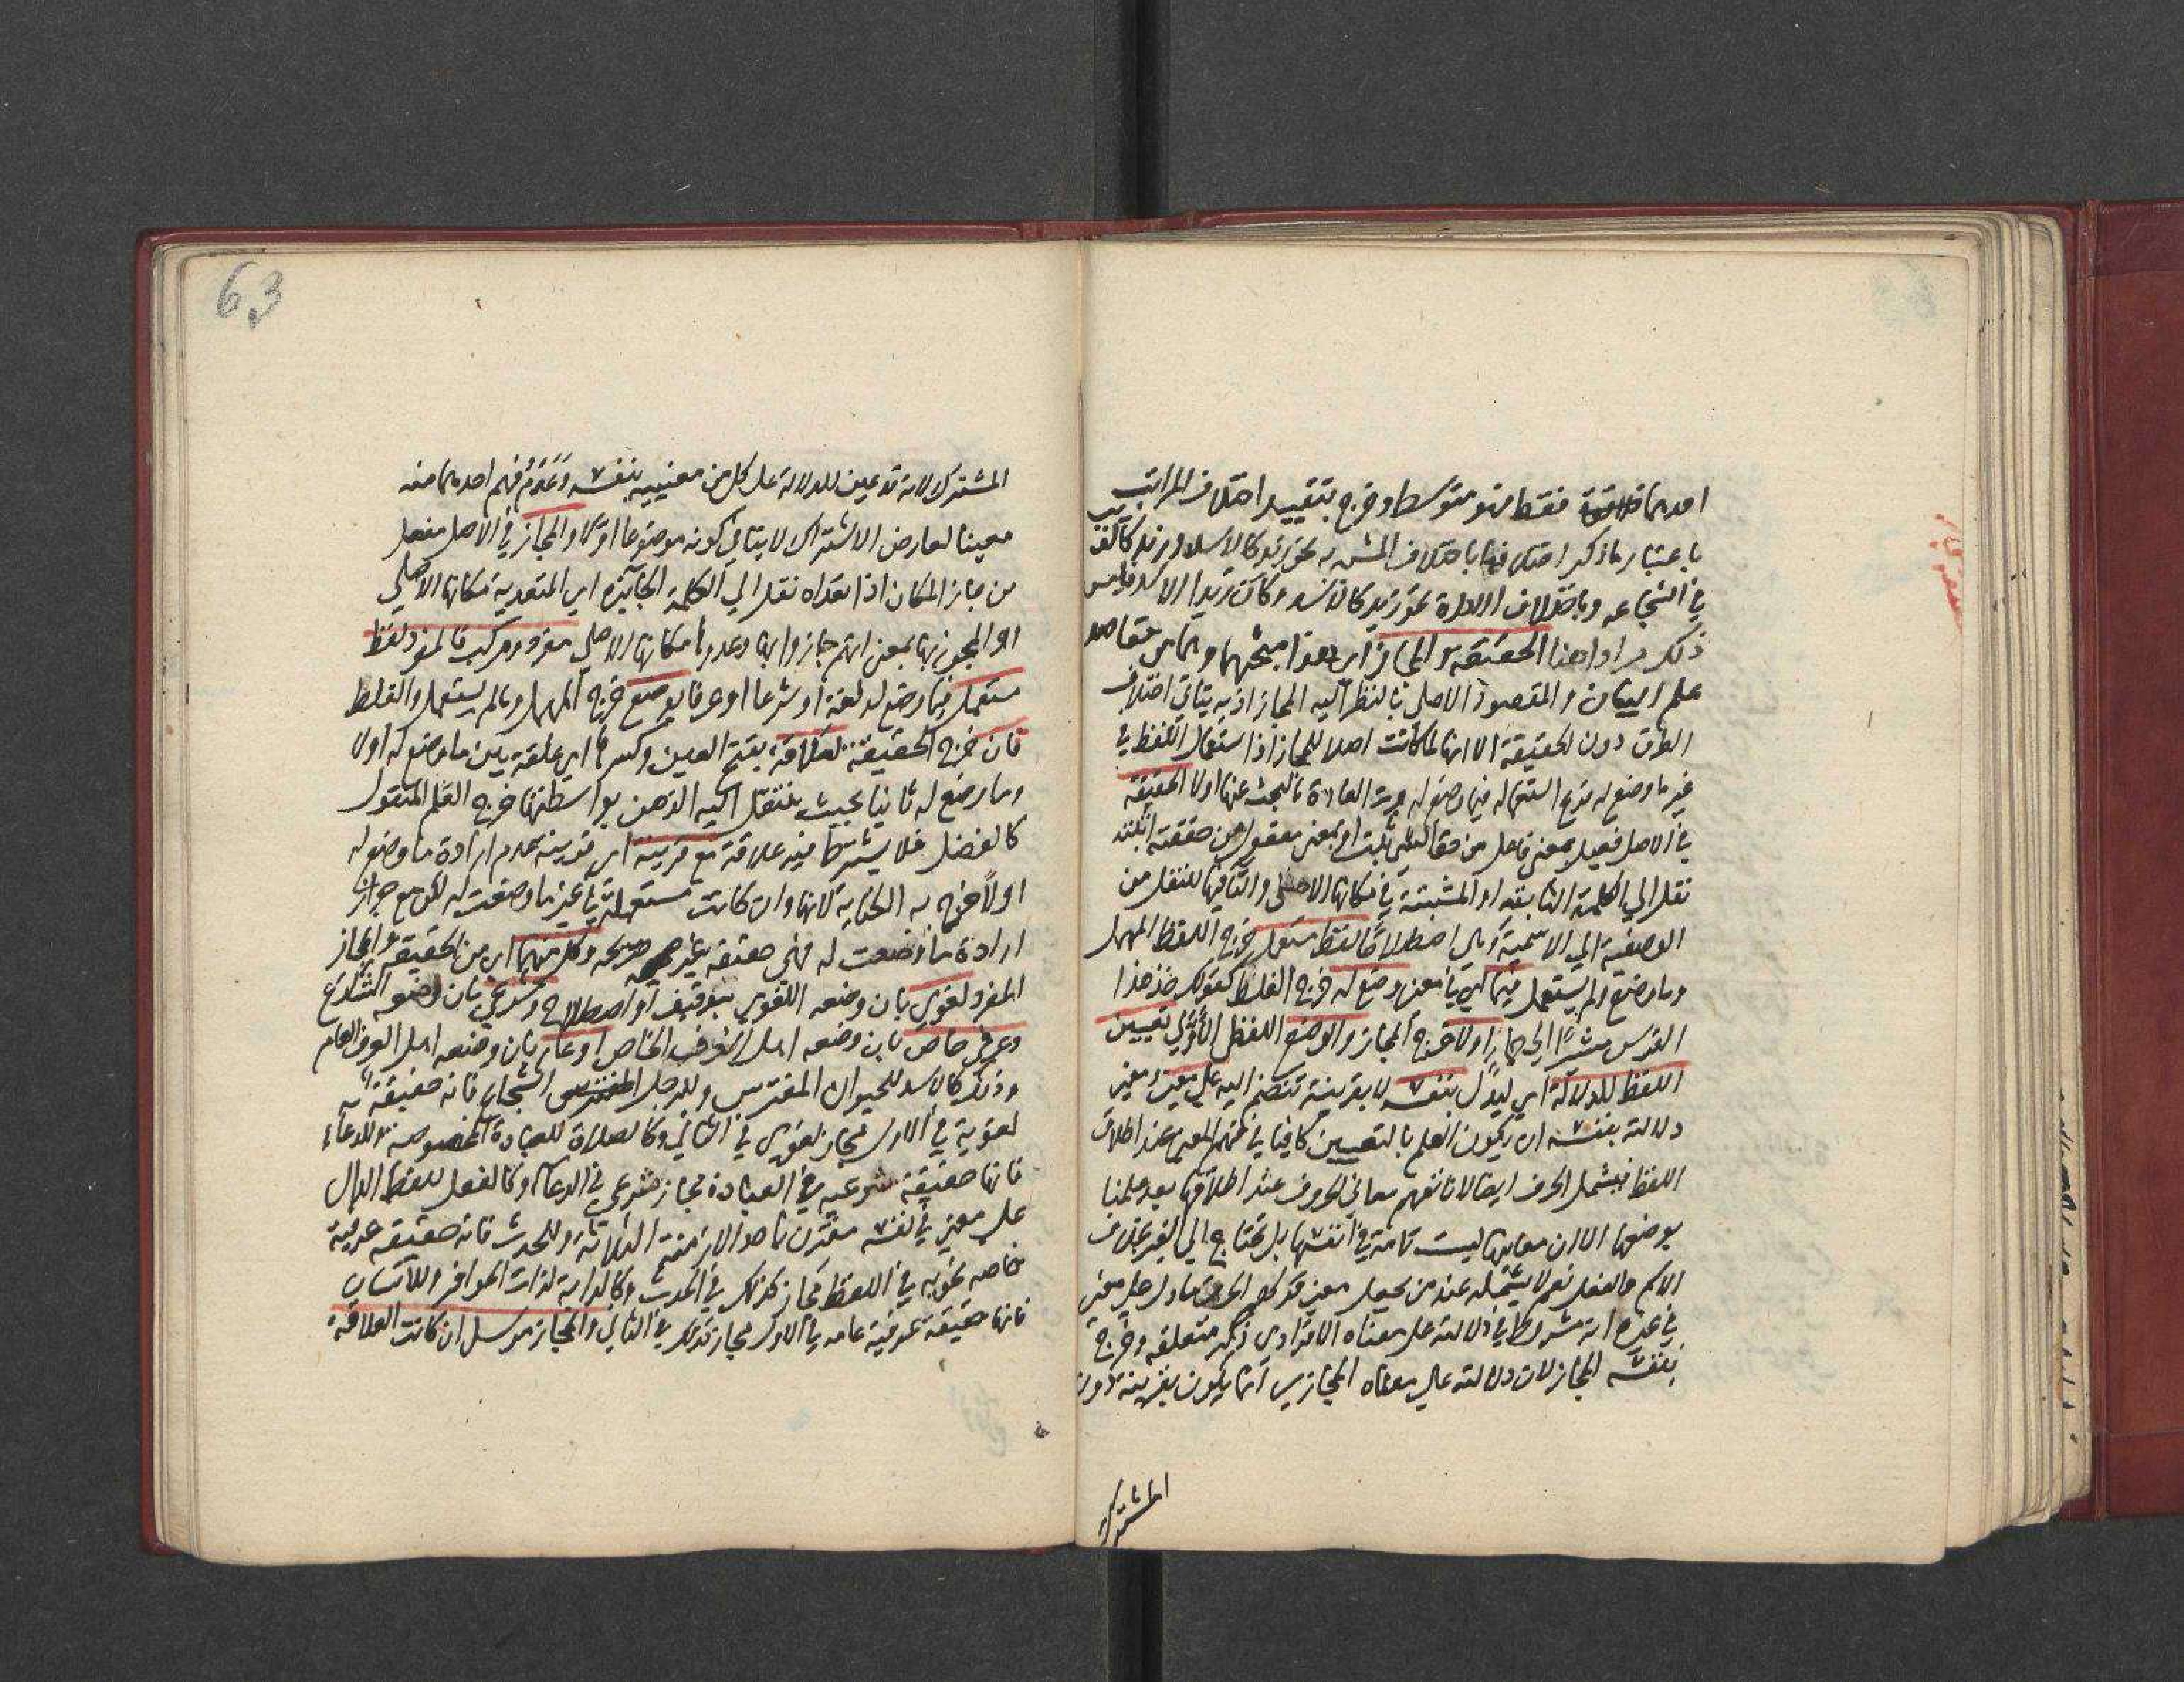 احدهما فقط فهو متوسط وخرج بتقييد اختلاف المراتب
باعتبار ما ذكر اختلافها باختلاف المشبه به نحو زيد كالاسد وزيد كالذئب
في الشجاعه وباختلاف الاداة نحو زيد كالاسد وكان زيدا الاسد فليس
ذلك مرادا هنا الحقيقه والمجاز اي هذا مبحثهما وهما من مقاصد
علم البيان والمقصود الاصلي بالنظر اليه المجاز اذ به يتاتي اختلاف
الطرق دون الحقيقة الا انها لما كانت اصلا للمجاز اذ استعمال اللفظ في
غير ما وضع له فرع استعماله فيما وضع له جرت العادة بالبحث عنها اولا الحقيقة
في الاصل فعيل بمعني فاعل من حق الشي ثبت او بمعني مفعول من حققته اثبته
نقل الي الكلمة الثابته او المثبتة في مكانها الاصلي والتا فيها للنقل من
الوصفية الي الاسمية وهي اصطلاحًا لفظ مستعمل خرج اللفظ المهمل
وما وضع ولم يستعمل فيما اي في معني وضع له خرج الغلط كقولك خذ هذا
الفرس مشيرًا الي حمار اولا خرج المجاز والوضع اللفظي الأوّلي تعيين
اللفظ للدلالة اي ليدل بنفسه لا بقرينة تنضم اليه علي معني ومعني
دلالته بنفسه ان يكون العلم بالتعيين كافيا في فهم المعني عند اطلاق
اللفظ فيشمل الحرف ايضا لانا نفهم معاني الحروف عند اطلاقها بعد علمنا
بوضعها الا ان معانيها ليست تامة في انفسها بل تحتاج الي الغير بخلاف
الاسم والفعل نعم لا يشمله عند من يجعل معني قولهم الحرف ما دل علي معني
في غيره انه مشروط في دلالته علي معناه الافرادي ذكر متعلقه وخرج
بنفسه المجاز لان دلالته علي معناه المجازي انما يكون بقرينة دون
المشترك
63
المشترك لانه قد عين للدلالة علي كل من معنييه بنفسه وَعَدَمُ فهم احدهما منه
معينا لعارض الاشتراك لا ينافي كونه موضوعا اولا والمجاز في الاصل مفعل
من جاز المكان اذا تعداه نقل الي الكلمة الجائزه اي المتعدية مكانها الاصلي
او المجوز بها بمعني انهم جازوا بها وعدوها مكانها الاصلي مفرد ومركب فالمفرد لفظ
مستعمل فيما وضع له لغة او شرعا او عرفا بوضع خرج المهمل وما لم يستعمل والغلط
ثان خرج الحقيقة لعَلاقة بفتح العين وكسرها اي علقة بين ما وضع له اولا
وما وضع له ثانيا بحيث ينتقل اليه الذهن بواسطتها خرج العَلم المنقول
كالفضل فلا يشترط فيه علاقة مع قرينة اي قرينة عدم ارادة ما وضع له
اولاً خرج به الكناية لانها وان كانت مستعملة في غير ما وضعت له لكن مع جواز
ارادة ما وضعت له فهي حقيقه غير صريحه وكل منهما اي من الحقيقه والمجاز
المفرد لغوي بان وضعه اللغوي بتوقيف او اصطلاح وشرعي بان وضعه الشارع
وعرفي خاص بان وضعه اهل العرف الخاص او عام بان وضعه اهل العرف العام
وذلك كالاسد للحيوان المفترس وللرجل الشجاع فانه حقيقة
لغوية في الاول مجاز لغوي في الثاني وكالصلاة للعبادة المخصوصة وللدعاء
فانها حقيقة شرعيه في العبادة مجاز شرعي في الدعا وكالفعل للفظ الدال
علي معني في نفسه مقترن باحد الازمنة الثلاثة وللحدث فانه حقيقه عرفية
خاصه نحويه في اللفظ مجاز كذلك في الحدث وكالدابة لذات الحوافر وللانسان
فانها حقيقة عرفية عامه في الاول مجاز كذلك في الثاني والمجاز مرسل ان كانت العلاقة